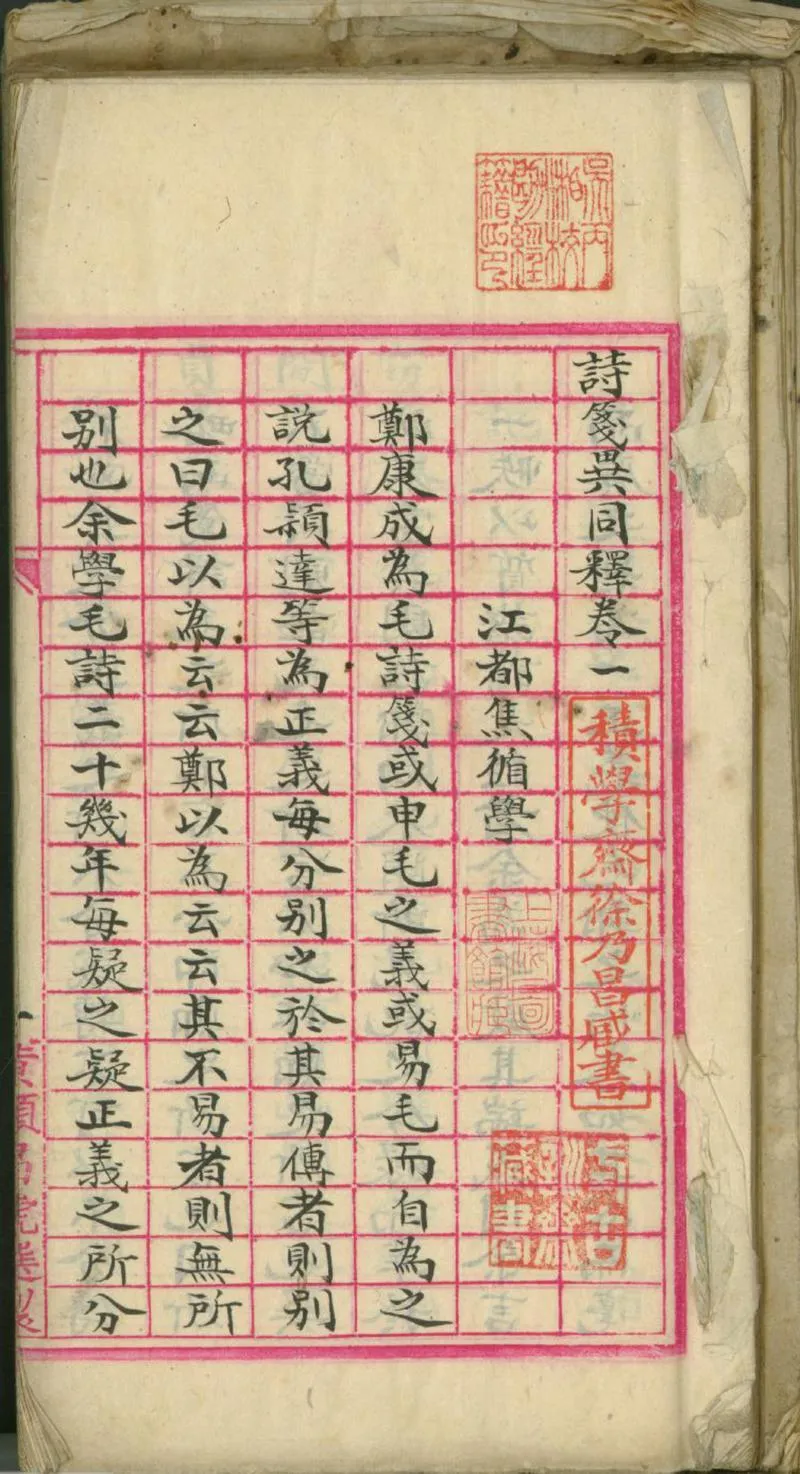 吳丙湘校勘經籍印
詩箋異同釋卷一
積學齋徐乃昌臧書
江都焦循學
上海圖書館臧
鄭康成為毛詩箋或申毛之義或易毛而自為之
說孔穎達等為正義每分别之於其易傳者則别
之曰毛以為云云鄭以為云云其不易者則無所
别也余學毛詩二十幾年每疑之疑正義之所分